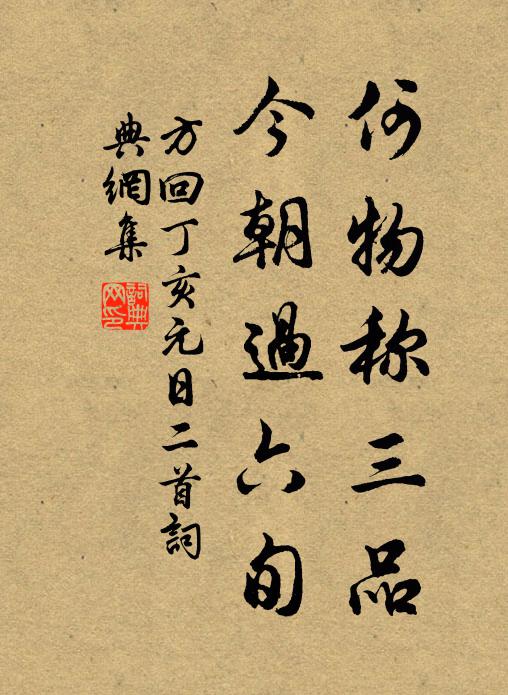 何物称三品
今朝過六旬
方回丁亥元日二首詞
典網集
詞典网印